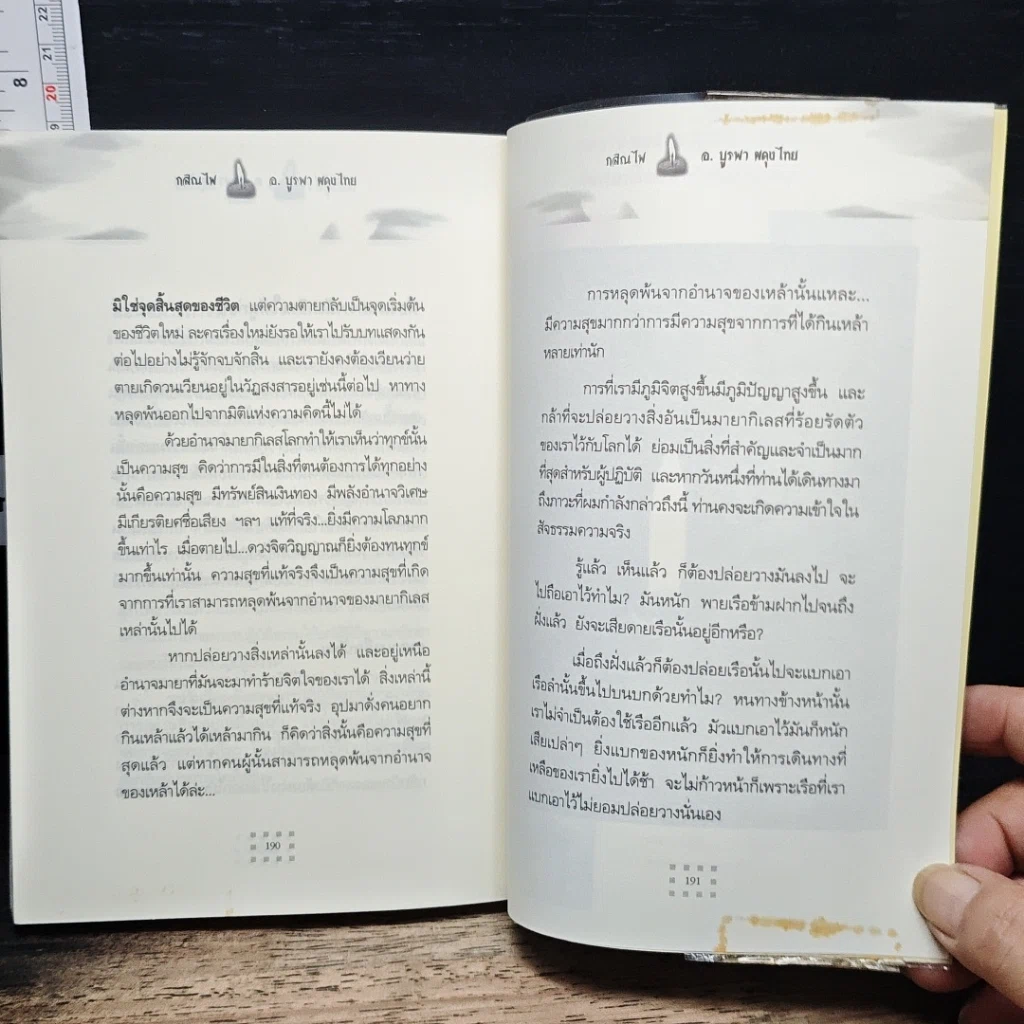 8
22
21
20
9
กสิณไฟ อ. บูรพา ผดุงไทย
มิใช่จุดสิ้นสุดของชีวิต แต่ความตายกลับเป็นจุดเริ่มต้น
ของชีวิตใหม่ ละครเรื่องใหม่ยังรอให้เราไปรับบทแสดงกัน
ต่อไปอย่างไม่รู้จักจบจักสิ้น และเรายังคงต้องเวียนว่าย
ตายเกิดวนเวียนอยู่ในวัฏสงสารอยู่เช่นนี้ต่อไป หาทาง
หลุดพ้นออกไปจากมิติแห่งความคิดนี้ไม่ได้
ด้วยอำนาจมายากิเลสโลกทำให้เราเห็นว่าทุกข์นั้น
เป็นความสุข คิดว่าการมีในสิ่งที่ตนต้องการได้ทุกอย่าง
นั้นคือความสุข มีทรัพย์สินเงินทอง มีพลังอำนาจวิเศษ
มีเกียรติยศชื่อเสียง ฯลฯ แท้ที่จริง...ยิ่งมีความโลภมาก
ขึ้นเท่าไร เมื่อตายไป...ดวงจิตวิญญาณก็ยิ่งต้องทนทุกข์
มากขึ้นเท่านั้น ความสุขที่แท้จริงจึงเป็นความสุขที่เกิด
จากการที่เราสามารถหลุดพ้นจากอำนาจของมายากิเลส
เหล่านั้นไปได้
หากปล่อยวางสิ่งเหล่านั้นลงได้ และอยู่เหนือ
อำนาจมายาที่มันจะมาทำร้ายจิตใจของเราได้ สิ่งเหล่านี้
ต่างหากจึงจะเป็นความสุขที่แท้จริง อุปมาดั่งคนอยาก
กินเหล้าแล้วได้เหล้ามากิน ก็คิดว่าสิ่งนั้นคือความสุขที่
สุดแล้ว แต่หากคนผู้นั้นสามารถหลุดพ้นจากอำนาจ
ของเหล้าได้ล่ะ...
190
กสิณไฟ อ. บูรพา ผดุงไทย
การหลุดพ้นจากอำนาจของเหล้านั้นแหละ...
มีความสุขมากกว่าการมีความสุขจากการที่ได้กินเหล้า
หลายเท่านัก
การที่เรามีภูมิจิตสูงขึ้นมีภูมิปัญญาสูงขึ้น และ
กล้าที่จะปล่อยวางสิ่งอันเป็นมายากิเลสที่ร้อยรัดตัว
ของเราไว้กับโลกได้ ย่อมเป็นสิ่งที่สำคัญและจำเป็นมาก
ที่สุดสำหรับผู้ปฏิบัติ และหากวันหนึ่งที่ท่านได้เดินทางมา
ถึงภาวะที่ผมกำลังกล่าวถึงนี้ ท่านคงจะเกิดความเข้าใจใน
สัจธรรมความจริง
รู้แล้ว เห็นแล้ว ก็ต้องปล่อยวางมันลงไป จะ
ไปถือเอาไว้ทำไม? มันหนัก พายเรือข้ามฝากไปจนถึง
ฝั่งแล้ว ยังจะเสียดายเรือนั้นอยู่อีกหรือ?
เมื่อถึงฝั่งแล้วก็ต้องปล่อยเรือนั้นไปจะแบกเอา
เรือลำนั้นขึ้นไปบนบกด้วยทำไม? หนทางข้างหน้านั้น
เราไม่จำเป็นต้องใช้เรืออีกแล้ว มัวแบกเอาไว้มันก็หนัก
เสียเปล่าๆ ยิ่งแบกของหนักก็ยิ่งทำให้การเดินทางที่
เหลือของเรายิ่งไปได้ช้า จะไม่ก้าวหน้าก็เพราะเรือที่เรา
แบกเอาไว้ไม่ยอมปล่อยวางนั่นเอง
191